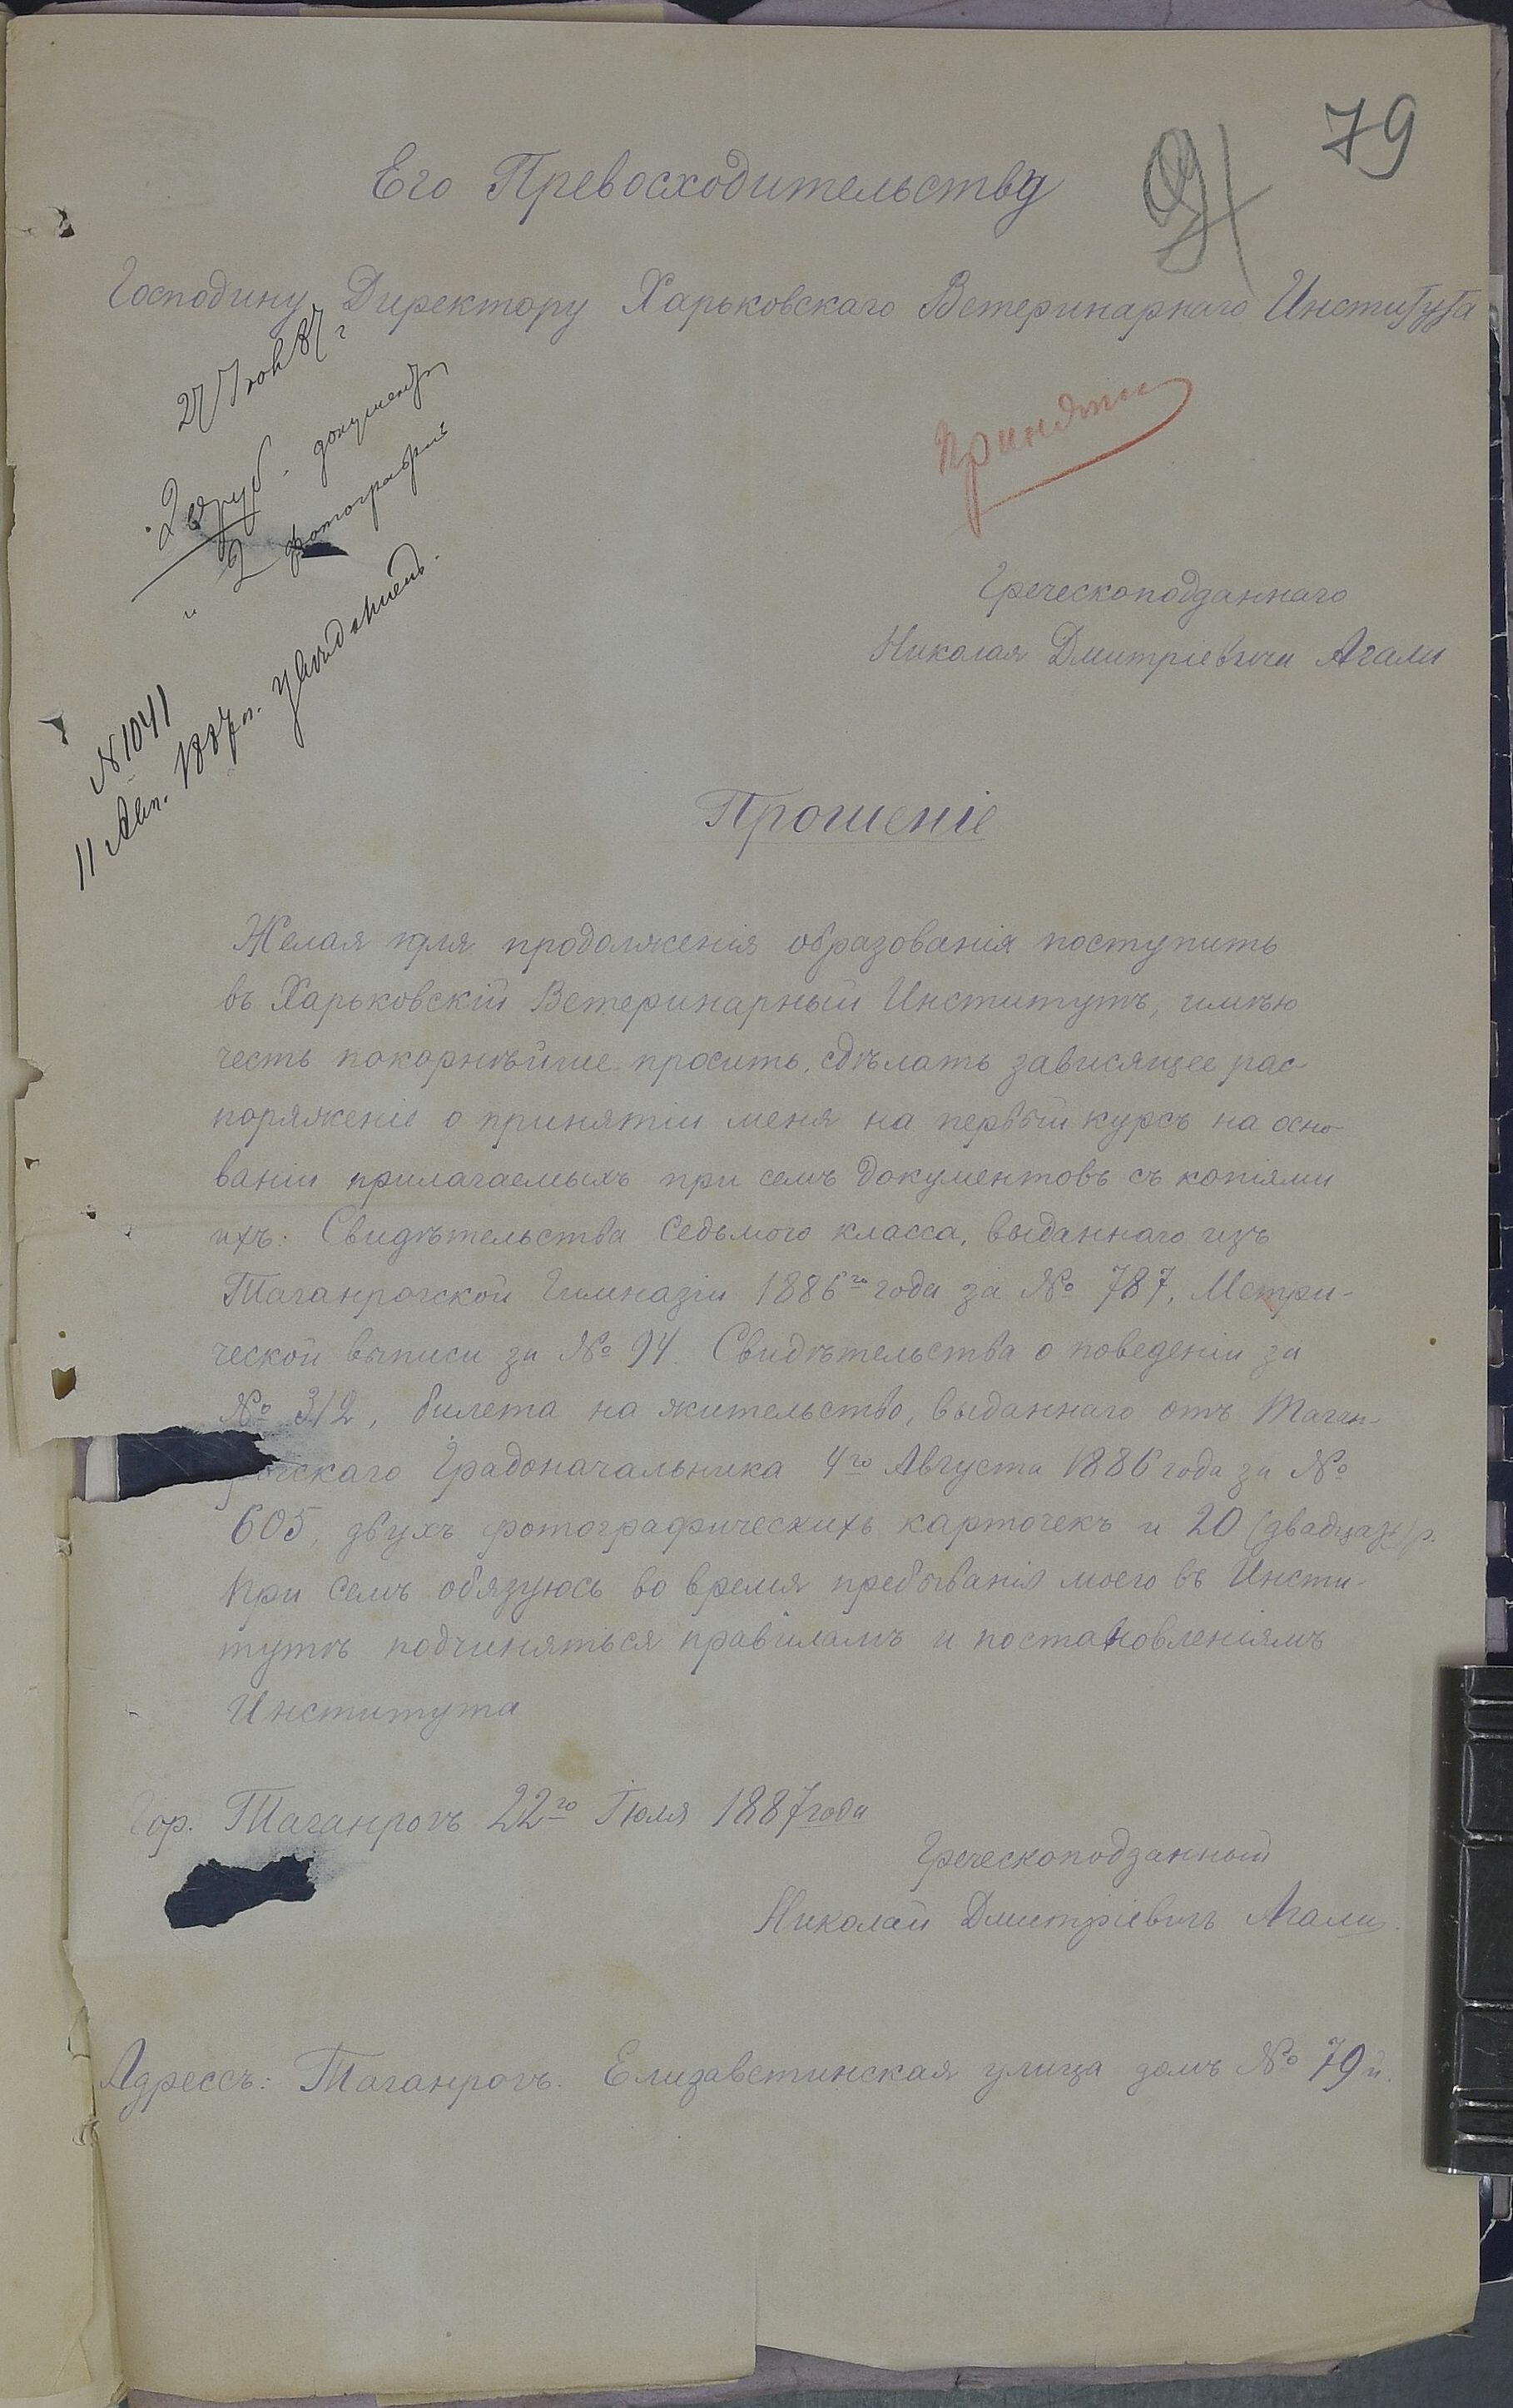 79
91
Его Превосходительству
Господину Директору Харьковскаго Ветеринарнаго Института
27 Іюл 87 г
20 руб. документы
и 2 фотографіи
N 1041
11 Авг. 1887 г. увѣдомленъ.
Принять
Греческоподданнаго
Николая Дмитріевича Агали
Прошеніе
Желая для продолженія образованія поступить
въ Харьковскій Ветеринарный Институтъ, имѣю
честь покорнѣйше просить, сдѣлать зависящее рас
поряженіе о принятіи меня на первый курсъ на осно-
ваніи прилагаемыхъ при семъ документовъ съ копіями
ихъ: Свидѣтельства седьмого класса, выданнаго изъ
Таганрогской Гимназіи 1886го года за № 787, Метри-
ческой выписи за № 94. Свидѣтельства о поведеніи за
№ 312, билета на жительство, выданнаго отъ Таган-
рогскаго Градоначальника 4го Августа 1886 года за №
605, двухъ фотографическихъ карточекъ и 20 (двадцать) р.
При семъ обязуюсь во время пребыванія моего въ Инсти-
тутѣ подчиняться правиламъ и постановленіямъ
Института
Гор. Таганрогъ 22го Іюля 1887 года
Греческоподданный
Николай Дмитріевичъ Агали.
Адрессъ: Таганрогъ. Елизаветинская улица домъ № 79й.